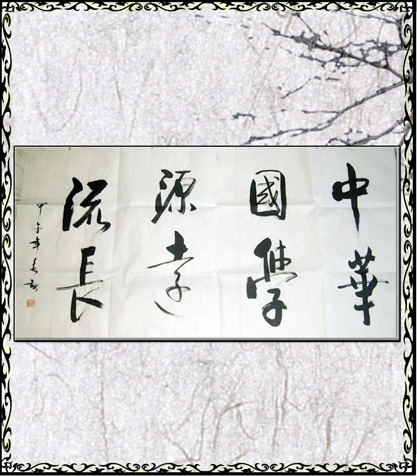 中華
國學
源遠
流長
甲午年春